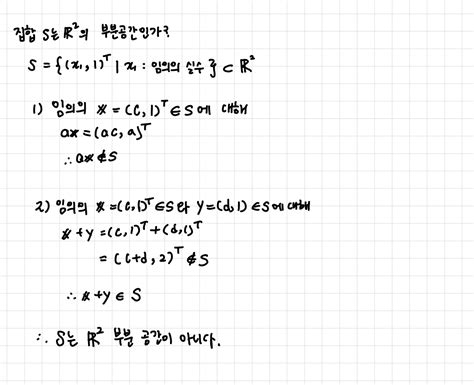 집합 S는 ℝ²의 부분공간인가?
S = {(x₁, 1)ᵀ | x₁ : 임의의 실수} ⊂ ℝ²
1) 임의의 𝕩 = (c, 1)ᵀ ∈ S 에 대해
a𝕩 = (ac, a)ᵀ
∴ a𝕩 ∉ S
2) 임의의 𝕩 = (c, 1)ᵀ ∈ S 와 y = (d, 1) ∈ S 에 대해
𝕩 + y = (c, 1)ᵀ + (d, 1)ᵀ
= (c+d, 2)ᵀ ∉ S
∴ 𝕩 + y ∈ S
∴ S는 ℝ² 부분 공간이 아니다.